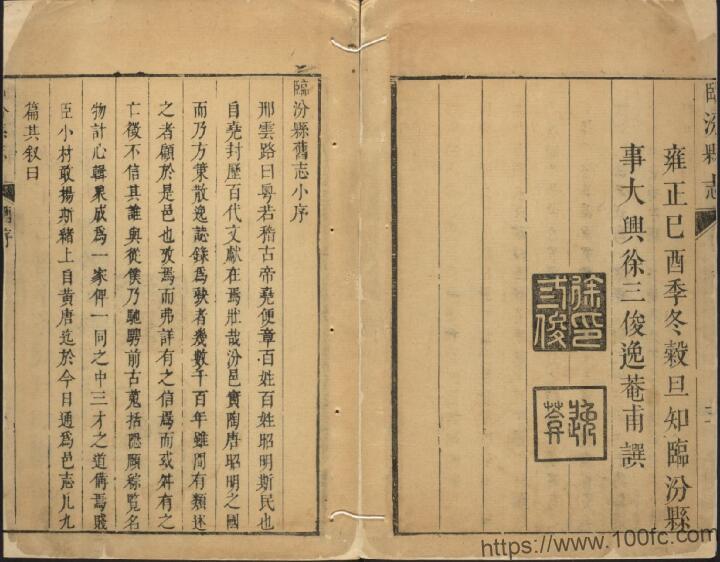 臨汾縣志
雍正巳酉季冬穀旦知臨汾縣
事大興徐三俊逸菴甫譔
徐三俊印
逸菴
臨汾縣舊志小序
邢雲路曰粵若稽古帝堯便章百姓百姓昭明斯民也
自堯封歷百代文獻在焉壯哉汾邑實陶唐昭明之國
而乃方策散逸誌錄為缺者幾數千百年雖間有類述
之者顧於是邑也攷焉而弗詳有之信焉而或舛有之
亡徵不信其誰與從僕乃馳騁前古蒐括隱顯綜覧名
物計心輯衆成為一家俾一同之中三才之道備焉賤
臣小材敢揚斯緒上自黃唐迄於今日通為邑志凡九
篇其叙曰
舊序
https://www.100fc.com